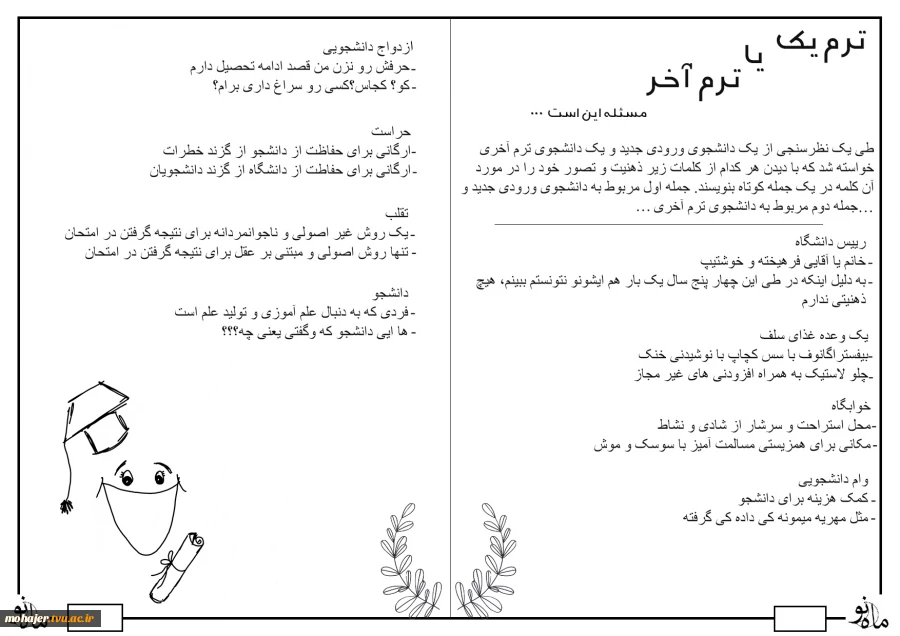 ترم یک
یا
ترم آخر
مسئله این است ...
طی یک نظرسنجی از یک دانشجوی ورودی جدید و یک دانشجوی ترم آخری
خواسته شد که با دیدن هر کدام از کلمات زیر ذهنیت و تصور خود را در مورد
آن کلمه در یک جمله کوتاه بنویسند. جمله اول مربوط به دانشجوی ورودی جدید و
...جمله دوم مربوط به دانشجوی ترم آخری ...
رییس دانشگاه
-خانم یا آقایی فرهیخته و خوشتیپ
-به دلیل اینکه در طی این چهار پنج سال یک بار هم ایشونو نتونستم ببینم، هیچ
ذهنیتی ندارم
یک وعده غذای سلف
-بیفستراگانوف با سس کچاپ با نوشیدنی خنک
-چلو لاستیک به همراه افزودنی های غیر مجاز
خوابگاه
-محل استراحت و سرشار از شادی و نشاط
-مکانی برای همزیستی مسالمت آمیز با سوسک و موش
وام دانشجویی
- کمک هزینه برای دانشجو
- مثل مهریه میمونه کی داده کی گرفته
ازدواج دانشجویی
-حرفش رو نزن من قصد ادامه تحصیل دارم
- کو؟ کجاس؟کسی رو سراغ داری برام؟
حراست
-ارگانی برای حفاظت از دانشجو از گزند خطرات
-ارگانی برای حفاطت از دانشگاه از گزند دانشجویان
تقلب
-یک روش غیر اصولی و ناجوانمردانه برای نتیجه گرفتن در امتحان
- تنها روش اصولی و مبتنی بر عقل برای نتیجه گرفتن در امتحان
دانشجو
- فردی که به دنبال علم آموزی و تولید علم است
- ها ایی دانشجو که وگفتی یعنی چه؟؟؟
ماه نو
ماه نو
mohajer.tvu.ac.ir